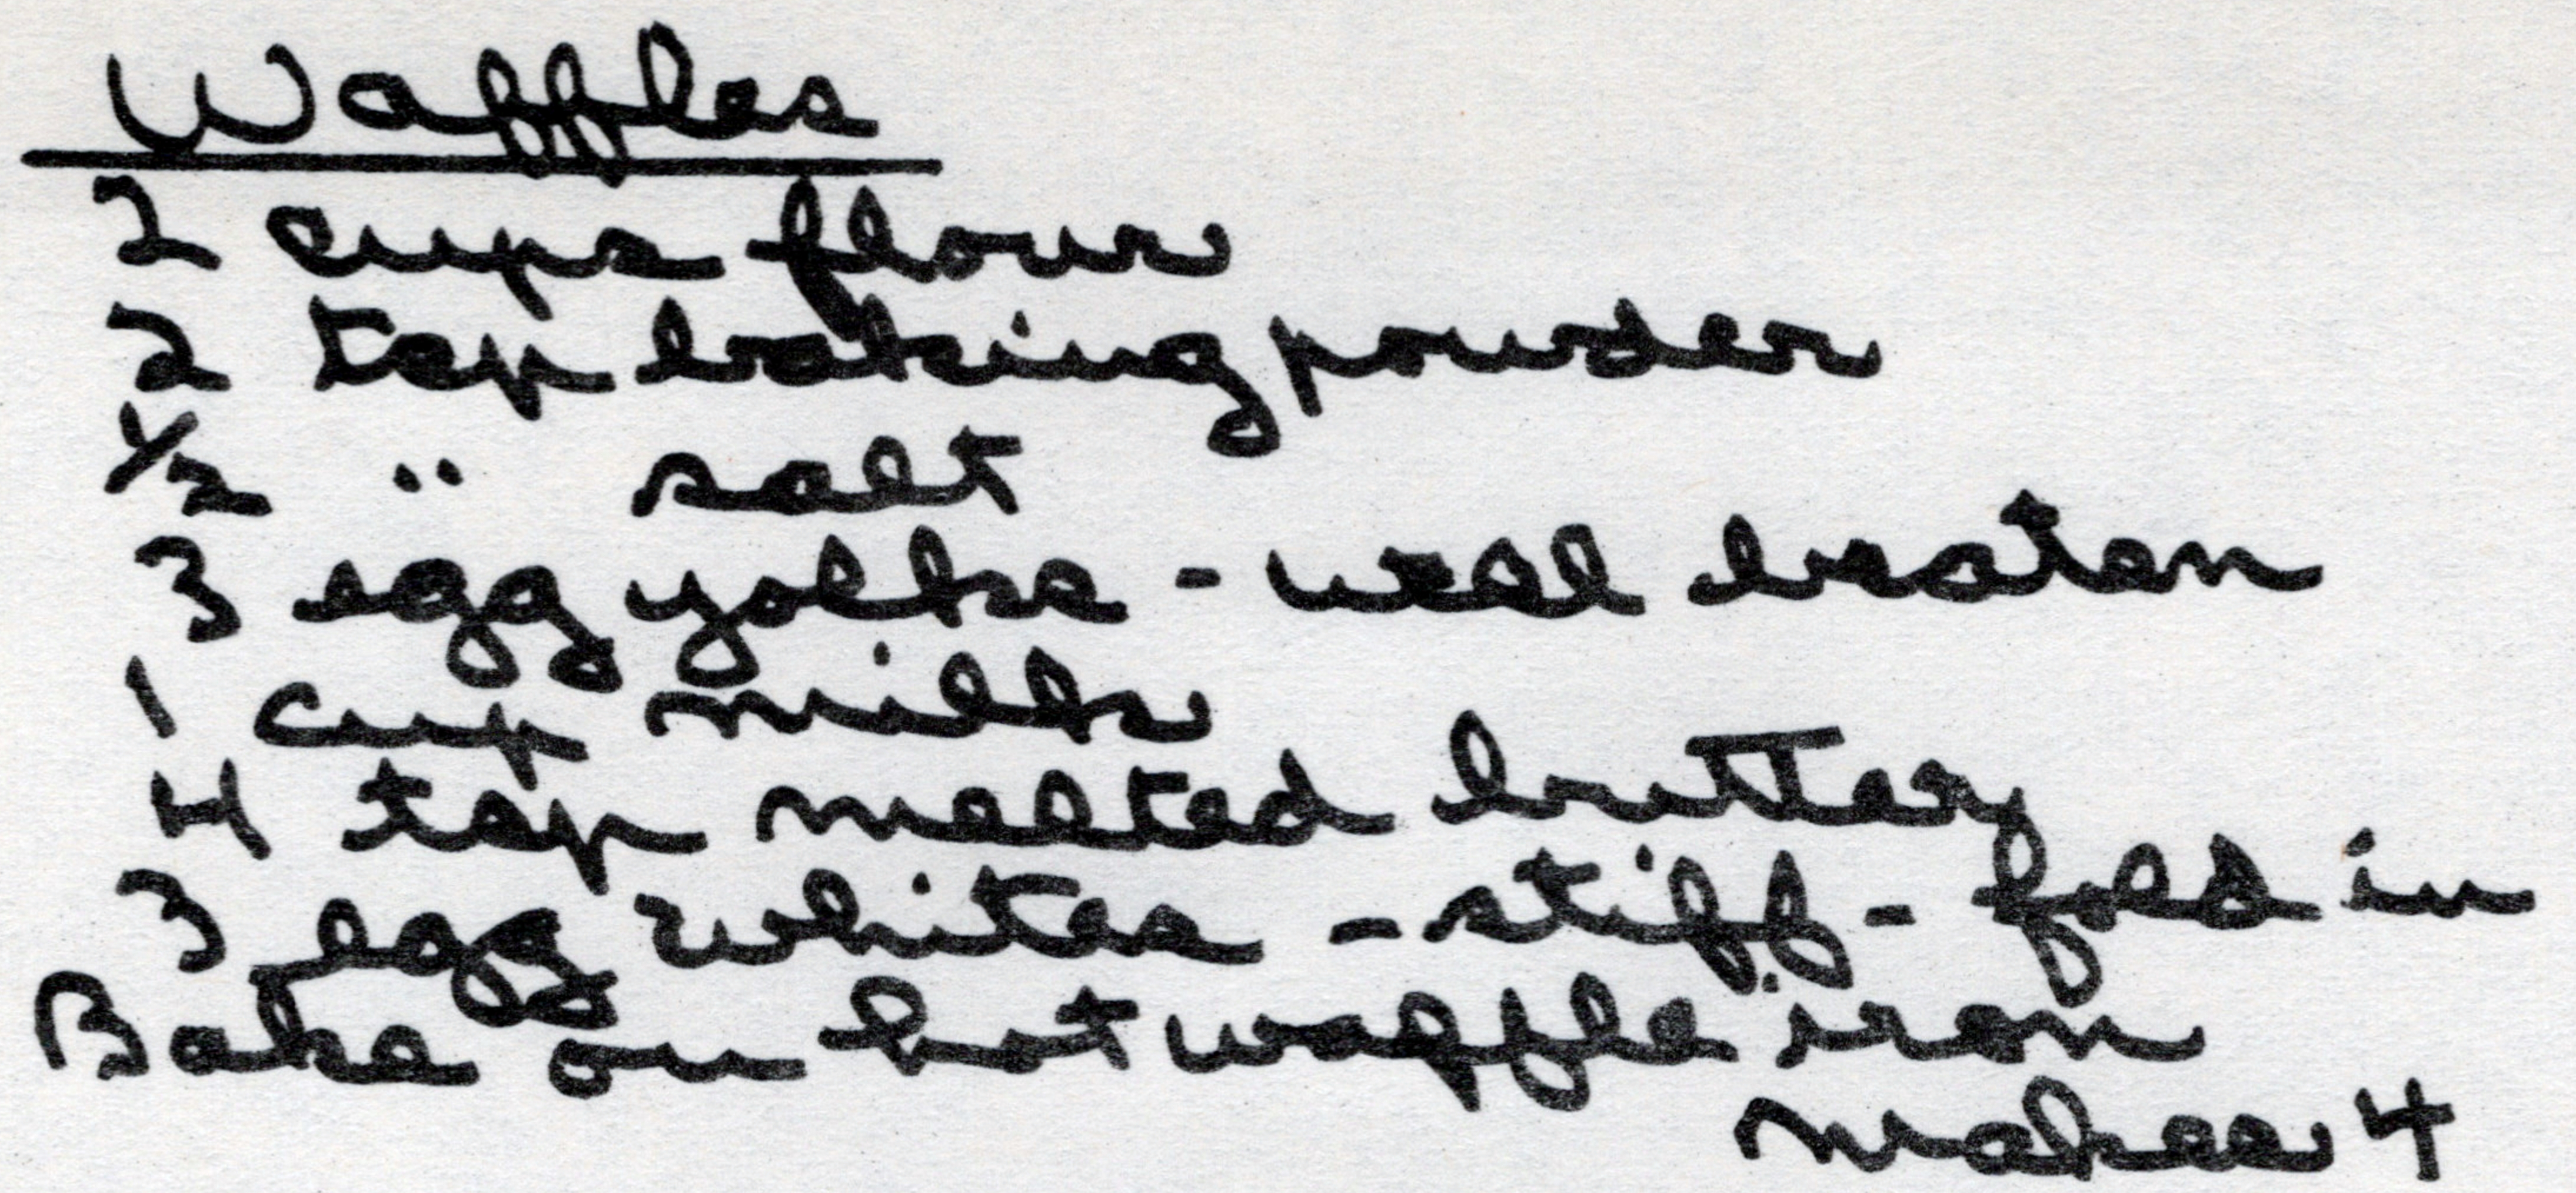 Waffles
2 cups flour
2 tsp baking powder
1/2 " salt
3 egg yolks - well beaten
1 cup milk
4 tsp melted butter
3 egg whites - stiff - fold in
Bake on hot waffle iron
makes 4